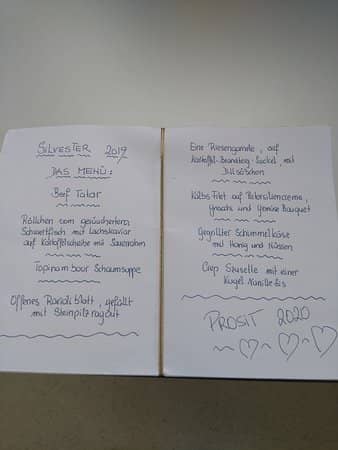 SILVESTER 2019
DAS MENÜ:
Beef Tatar
Röllchen vom geräucherten
Schwertfisch mit Lachskaviar
auf Kartoffelscheibe mit Sauerrahm
Topinambour Schaumsuppe
Offenes Ravioliblatt, gefüllt
mit Steinpilzragout
Eine Riesengarnele, auf
Kartoffel-Brandteig-Sockel, mit
Dillsößchen
Kalbs Filet auf Petersiliencreme,
Gnocchi und Gemüse Bouquet
Gegrillter Schimmelkäse
mit Honig und Nüssen
Crêp Susette mit einer
Kugel Vanille Eis
PROSIT 2020